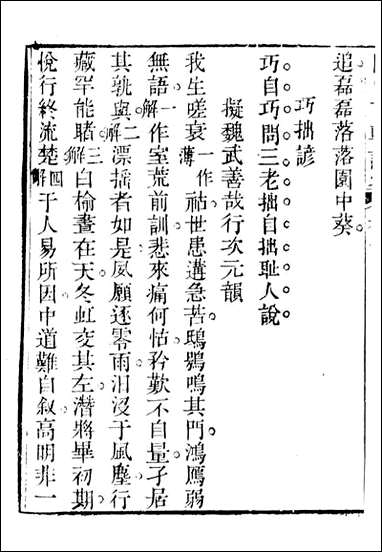 追磊磊落落園中葵
巧拙諺
巧自巧問三老拙自拙耻人說
擬魏武善哉行次元韻
我生嗟衰一作薄祜世患遘急苦鴟鴞鳴其門鴻鴈弱
無語一解作室荒前訓悲來痛何怙矜歎不自量孑居
其孰與二解漂揺者如是夙願逐零雨汨沒于風塵行
藏罕能睹三解白榆晝在天冬虹变其左潛將畢初期
悅行終流楚四解于人易所因中道難自叙高明非一